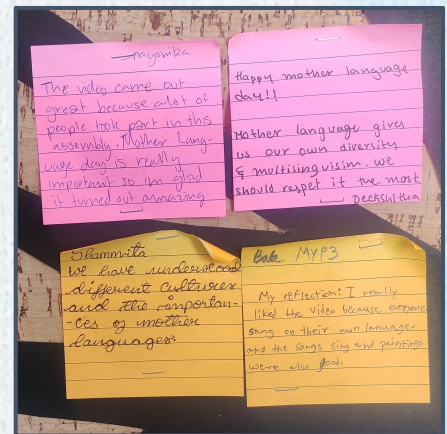 nayonika
The video came out
great because alot of
people took part in this
assembly. Mother Lang-
uage day is really
important so im glad
it turned out amazing
Happy mother language
day!!
Mother language gives
us our own diversity
& multilinguisim. we
should respet it the most
Deekshitha
Shammita
We have understood
different cultures
and the importan-
-ces of mother
languages.
MYP3
My reflection: I really
liked the video because everyone
sang on their own lanuage
and the songs sing and paintings
were also good.